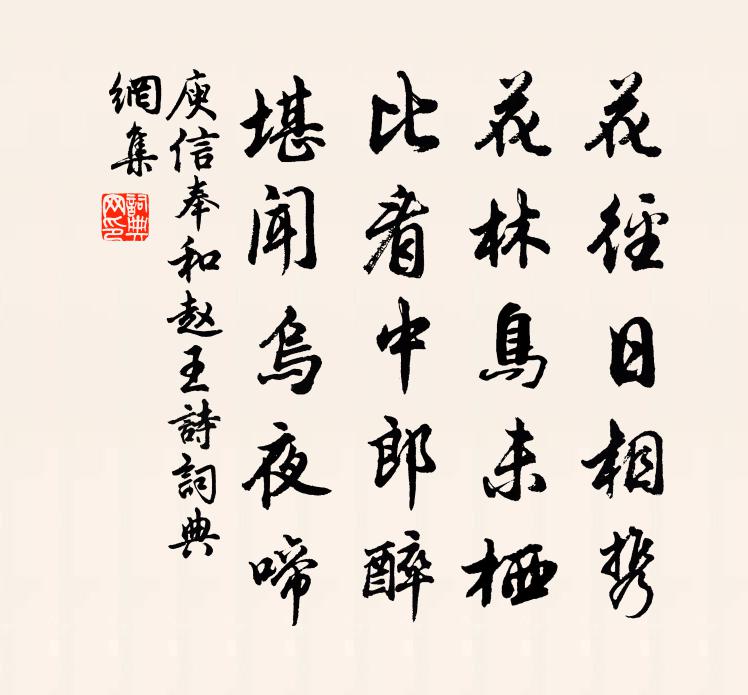 花徑日相携
花林鳥未栖
比看中郎醉
堪聞烏夜啼
庾信奉和赵王詩詞典
網集
詞典
网印